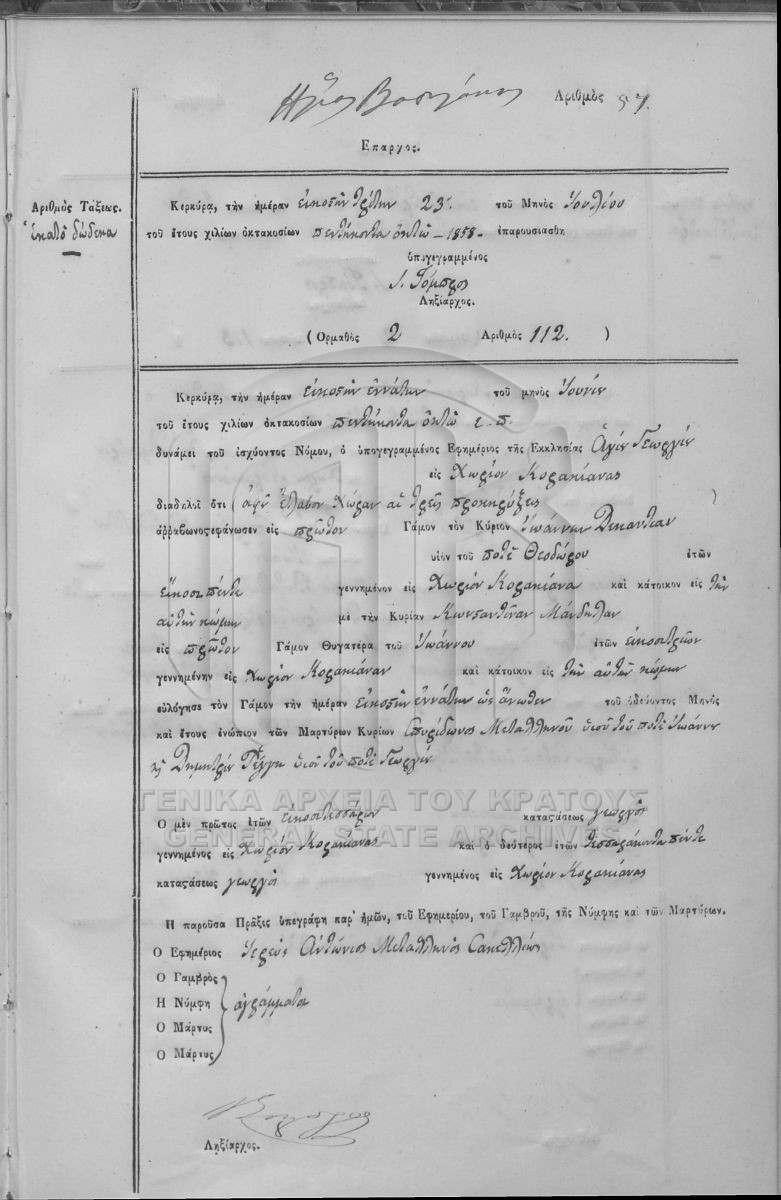 Ἀριθμὸς 57.
Ἔπαρχος.
Ἀριθμὸς Τάξεως.
ἑκατὸ δώδεκα
Κερκύρα, τὴν ἡμέραν εἰκοστὴν τρίτην 23. τοῦ Μηνὸς Ἰουλίου
τοῦ ἔτους χιλίων ὀκτακοσίων πεντήκοντα ὀκτὼ - 1858 - ἐπαρουσιάσθη
ὑπογεγραμμένος
Ληξίαρχος.
(Ὁρμαθὸς 2 Ἀριθμὸς 112. )
Κερκύρα, τὴν ἡμέραν εἰκοστὴν ἐννάτην τοῦ μηνὸς Ἰουνίου
τοῦ ἔτους χιλίων ὀκτακοσίων πεντήκοντα ὀκτὼ ε.π.
δυνάμει τοῦ ἰσχύοντος Νόμου, ὁ ὑπογεγραμμένος Ἐφημέριος τῆς Ἐκκλησίας Ἁγίου Γεωργίου
εἰς Χωρίον Κορακιάνας
διαδηλοῖ ὅτι (ἀφοῦ ἔλαβον χώραν αἱ τρεῖς προκηρύξεις )
ἀῤῥαβωνοςεφάνωσεν εἰς πρῶτον Γάμον τὸν Κύριον Ἰωάννην
υἱὸν τοῦ ποτὲ Θεοδώρου ἐτῶν
εἴκοσι πέντε γεννημένον εἰς Χωρίον Κορακιάνα καὶ κάτοικον εἰς τὴν
αὐτὴν κώμην μὲ τὴν Κυρίαν Κωνσταντῖναν Μάνδηλαν
εἰς πρῶτον Γάμον Θυγατέρα τοῦ Ἰωάννου ἐτῶν εἰκοσιτριῶν
γεννημένην εἰς Χωρίον Κορακιάναν καὶ κάτοικον εἰς τὴν αὐτὴν κώμην
εὐλόγησε τὸν Γάμον τὴν ἡμέραν εἰκοστὴν ἐννάτην ὡς ἄνωθεν τοῦ ὁδεύοντος Μηνὸς
καὶ ἔτους ἐνώπιον τῶν Μαρτύρων Κυρίων Σπυρίδωνος Μεταλληνοῦ υἱοῦ τοῦ ποτὲ Ἰωάννου
ϗ Δημητρίου υἱοῦ τοῦ ποτὲ Γεωργίου
ΓΕΝΙΚΑ ΑΡΧΕΙΑ ΤΟΥ ΚΡΑΤΟΥΣ
GENERAL STATE ARCHIVES
Ὁ μὲν πρῶτος ἐτῶν εἰκοσιτεσσάρων καταςάσεως γεωργὸς
γεννημένος εἰς Χωρίον Κορακιάνας καὶ ὁ δεύτερος ἐτῶν τεσσαράκοντα πέντε
καταςάσεως γεωργὸς γεννημένος εἰς Χωρίον Κορακιάνας
Ἡ παροῦσα Πρᾶξις ὑπεγράφη παρ' ἡμῶν, τοῦ Ἐφημερίου, τοῦ Γαμβροῦ, τῆς Νύμφης καὶ τῶν Μαρτύρων.
Ὁ Ἐφημέριος Ἱερεὺς Ἀντώνιος Μεταλληνὸς Σακελλάριος
Ὁ Γαμβρὸς
Ἡ Νύμφη ἀγράμματοι
Ὁ Μάρτυς
Ὁ Μάρτυς
Ληξίαρχος.